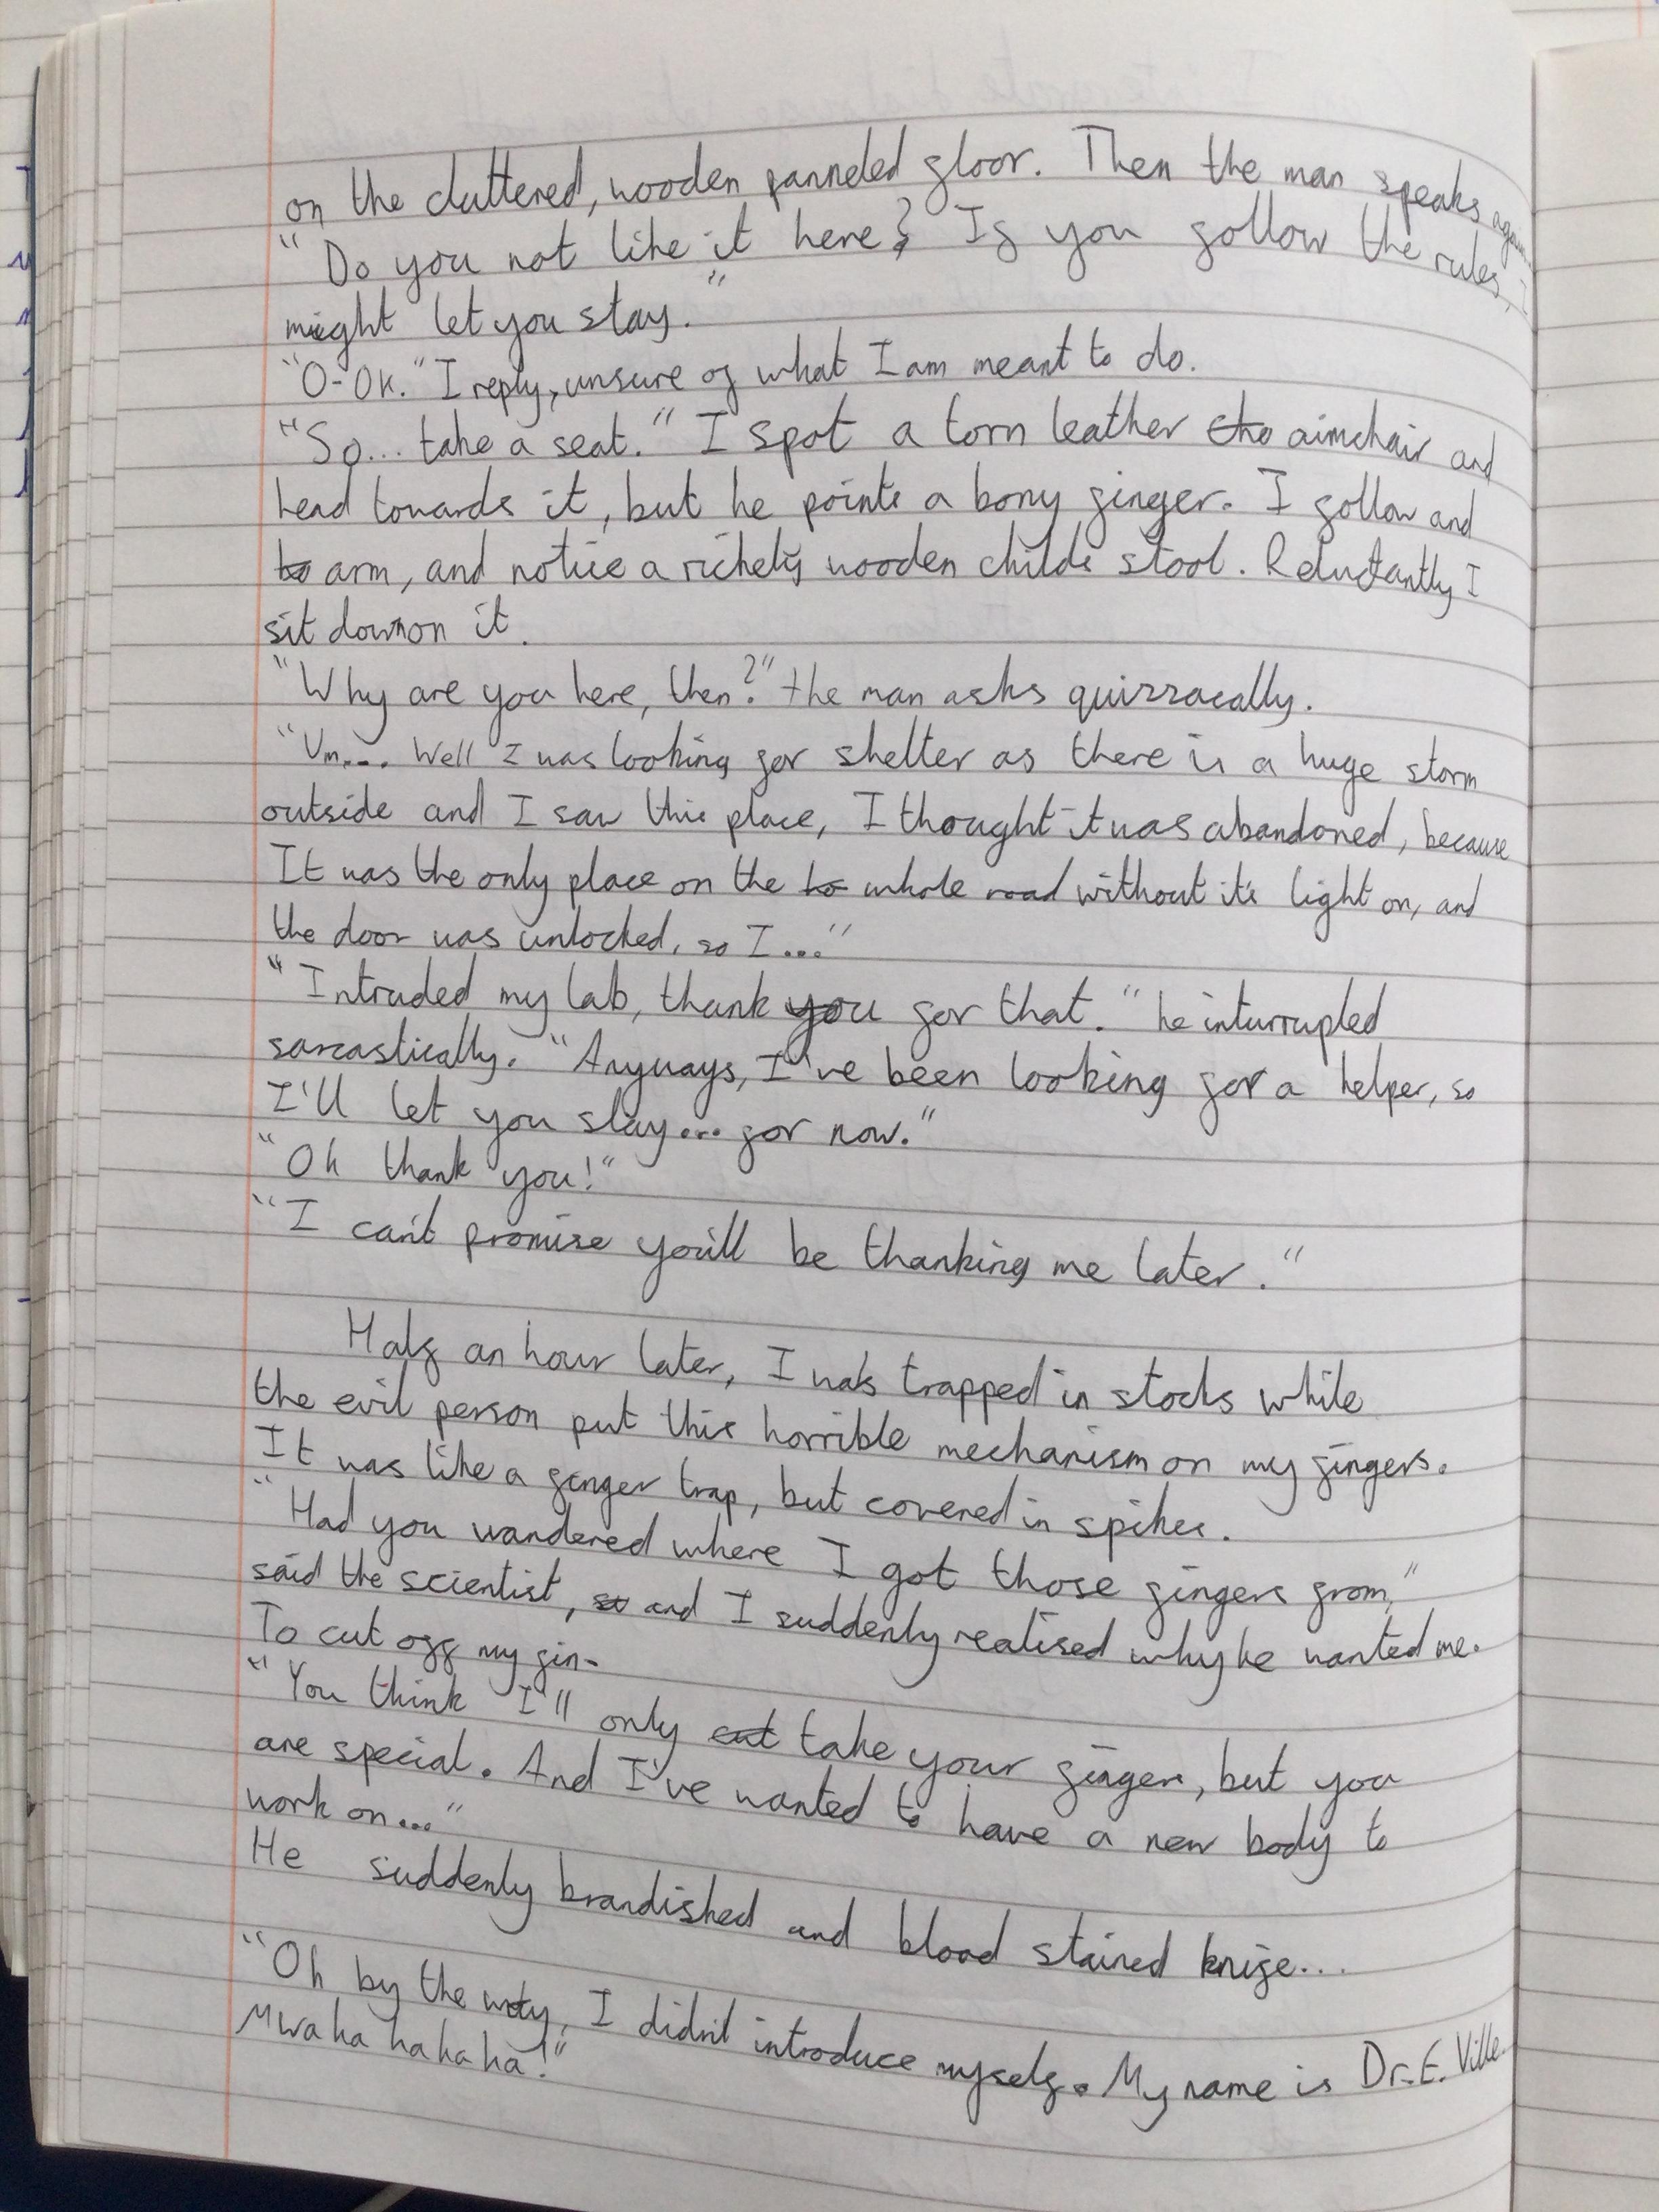 on the cluttered, wooden panneled floor. Then the man speaks again.
"Do you not like it here? If you follow the rules, I
might let you stay."
"O-OK." I reply, unsure of what I am meant to do.
"So... take a seat." I spot a torn leather cha aimchair and
head towards it, but he points a bony finger. I follow and
to arm, and notice a rickety wooden childs stool. Reluctantly I
sit down on it.
"Why are you here, then?" the man asks quizzacally.
"Um.... Well I was looking for shelter as there is a huge storm
outside and I saw this place, I thought it was abandoned, because
It was the only place on the ho whole road without it's light on, and
the door was unlocked, so I..."
"Intruded my lab, thank you for that." he inturrupted
sarcastically. "Anyways, I've been looking for a helper, so
I'll let you stay... for now."
"Oh thank you!"
"I can't promise you'll be thanking me later."
Half an hour later, I was trapped in stocks while
the evil person put this horrible mechanism on my fingers.
It was like a finger trap, but covered in spikes.
"Had you wandered where I got those fingers from,"
said the scientist, so and I suddenly realised why he wanted me.
To cut off my fin-
"You think I'll only cut take your fingers, but you
are special. And I've wanted to have a new body to
work on..."
He suddenly brandished and blood stained knife...
"Oh by the way, I didn't introduce myself. My name is Dr. E. Ville.
Mwa ha ha ha ha!"